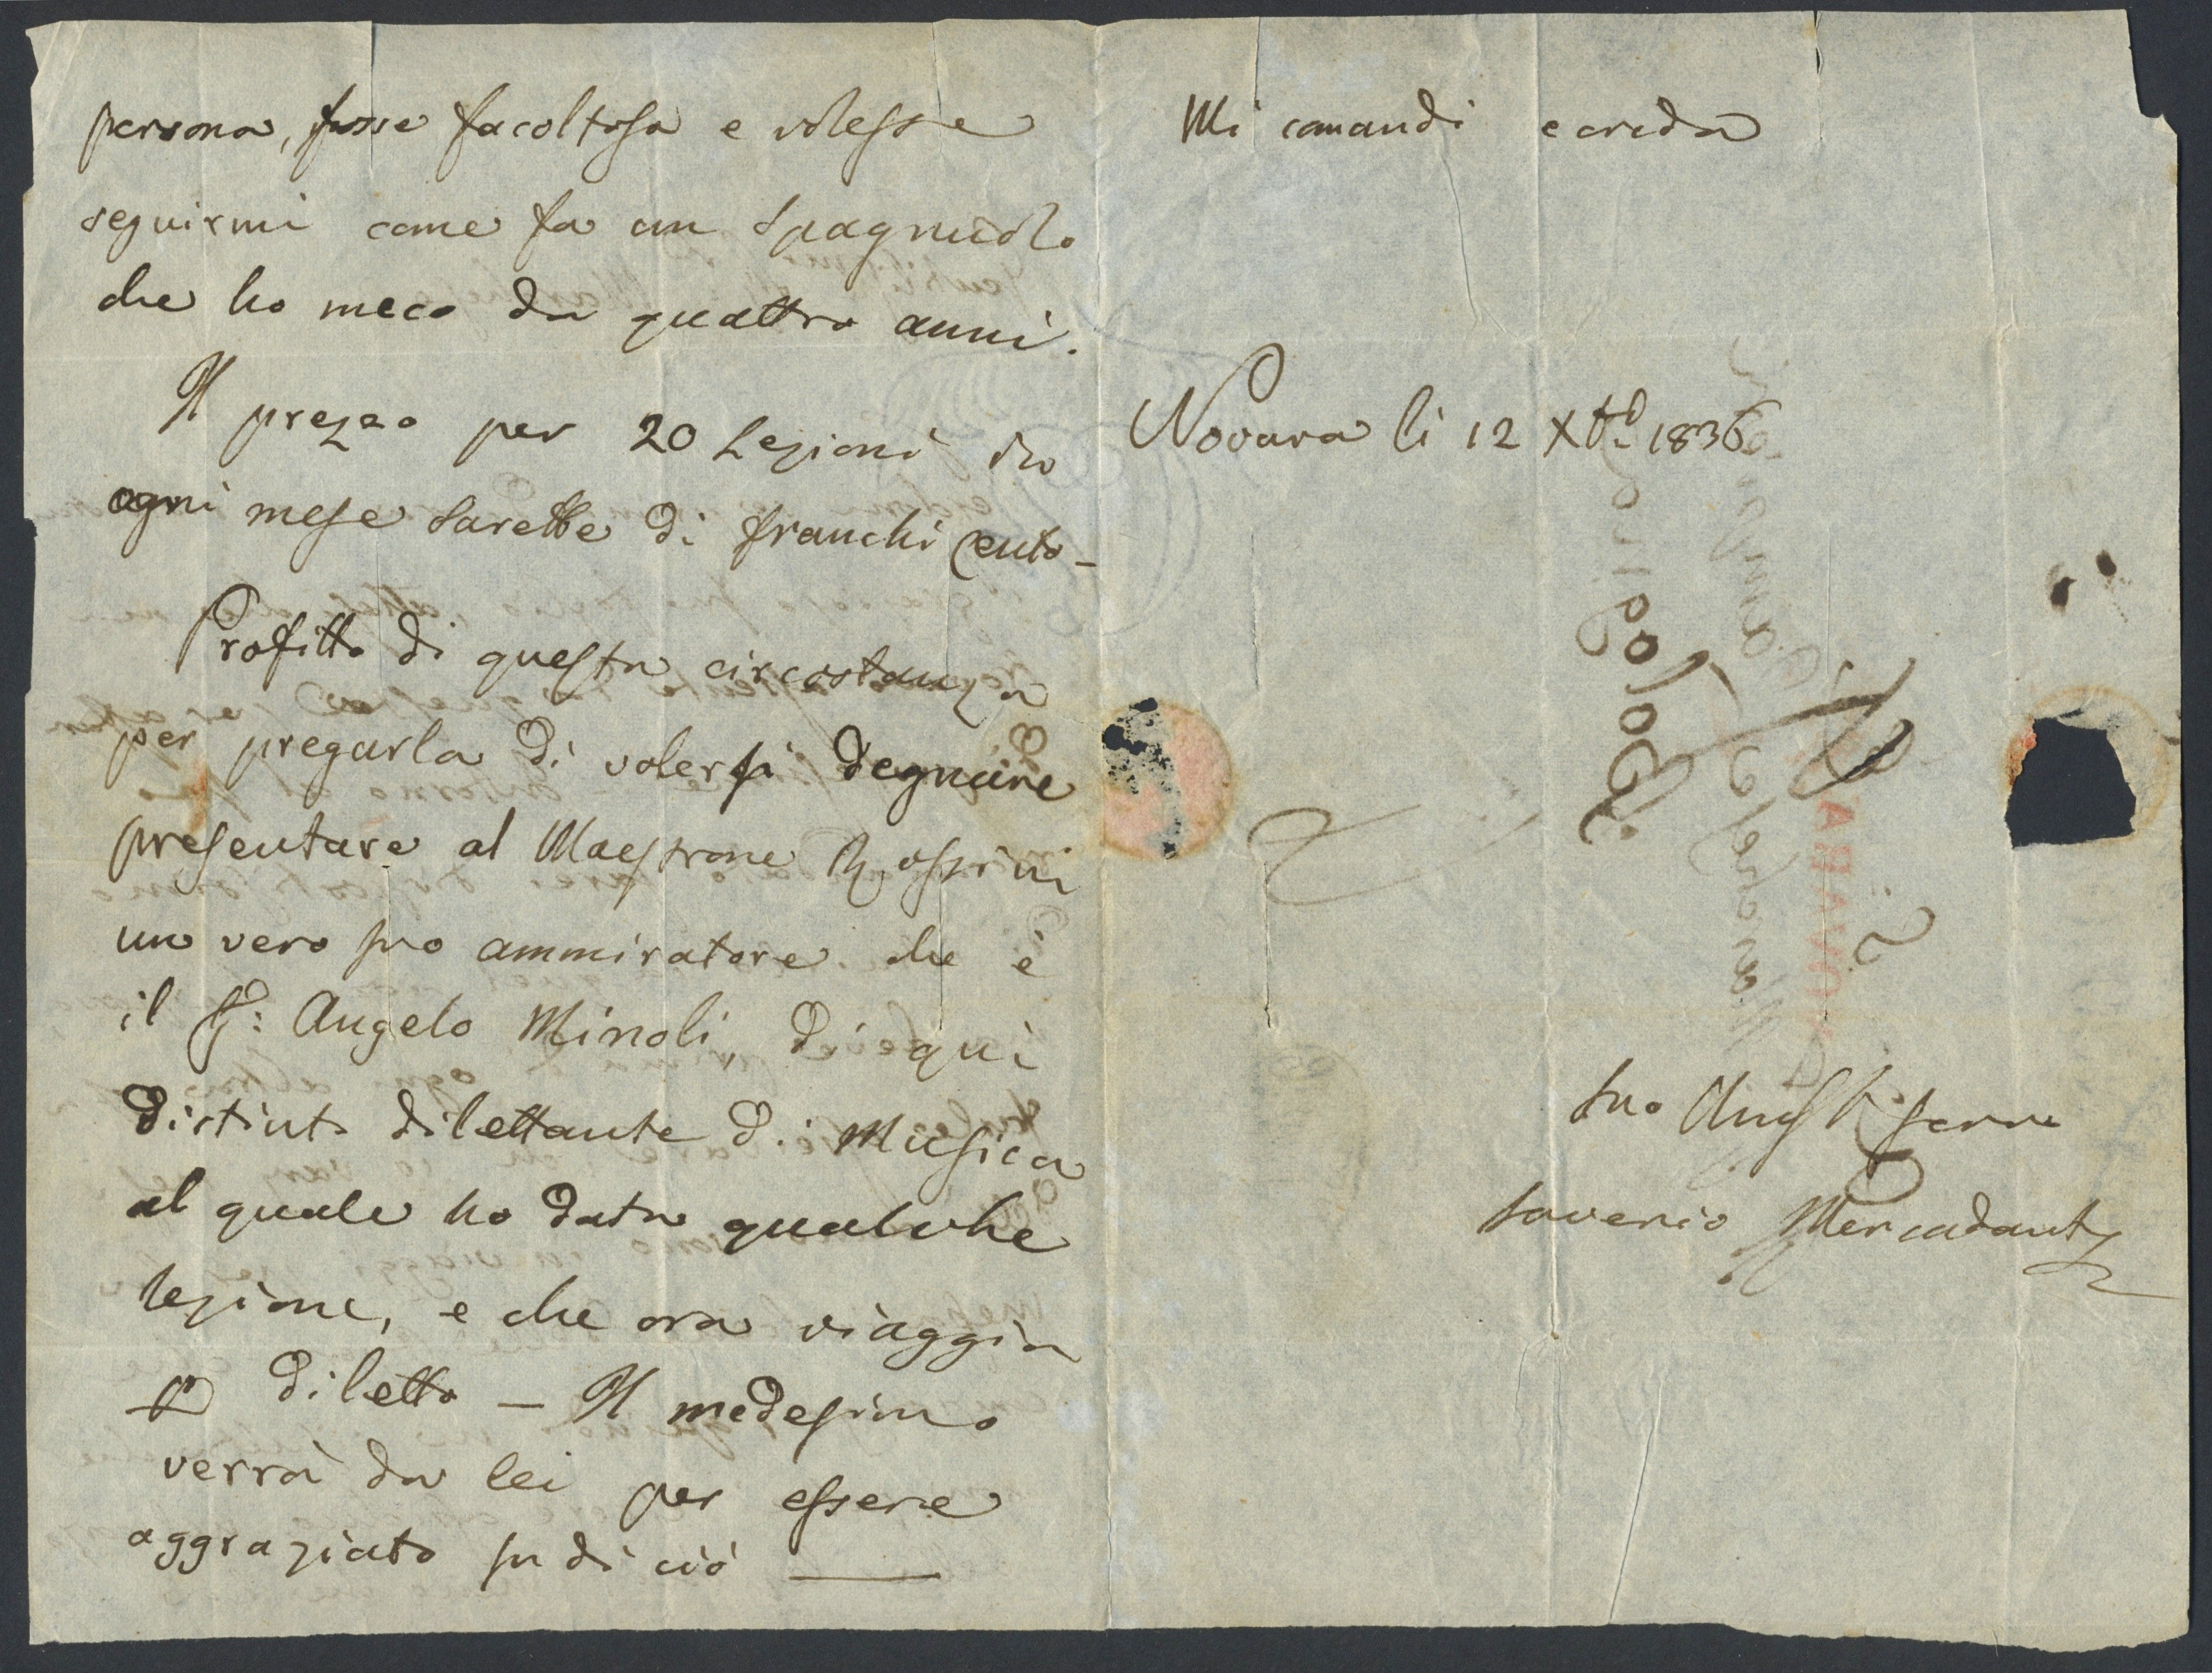 persona, fosse facoltosa e volesse
seguirmi come fa un Spagnuolo
che ho meco da quattro anni.
Il prezzo per 20 Lezioni in
ogni mese sarebbe di franchi cento -
Profitto di questa circostanza
per pregarla di volersi degnare
presentare al Maestrone Rossini
un vero suo ammiratore che è
il Sr: Angelo Minoli, di qui
distinto dilettante di Musica
al quale ho dato qualche
lezione, e che ora viaggia
diletto — Il medesimo
verrà da lei per essere
aggraziato su di ciò —
Mi comandi e creda
Novara li 12 Xbre 1836
Bologna
suo serve
Saverio Mercadante